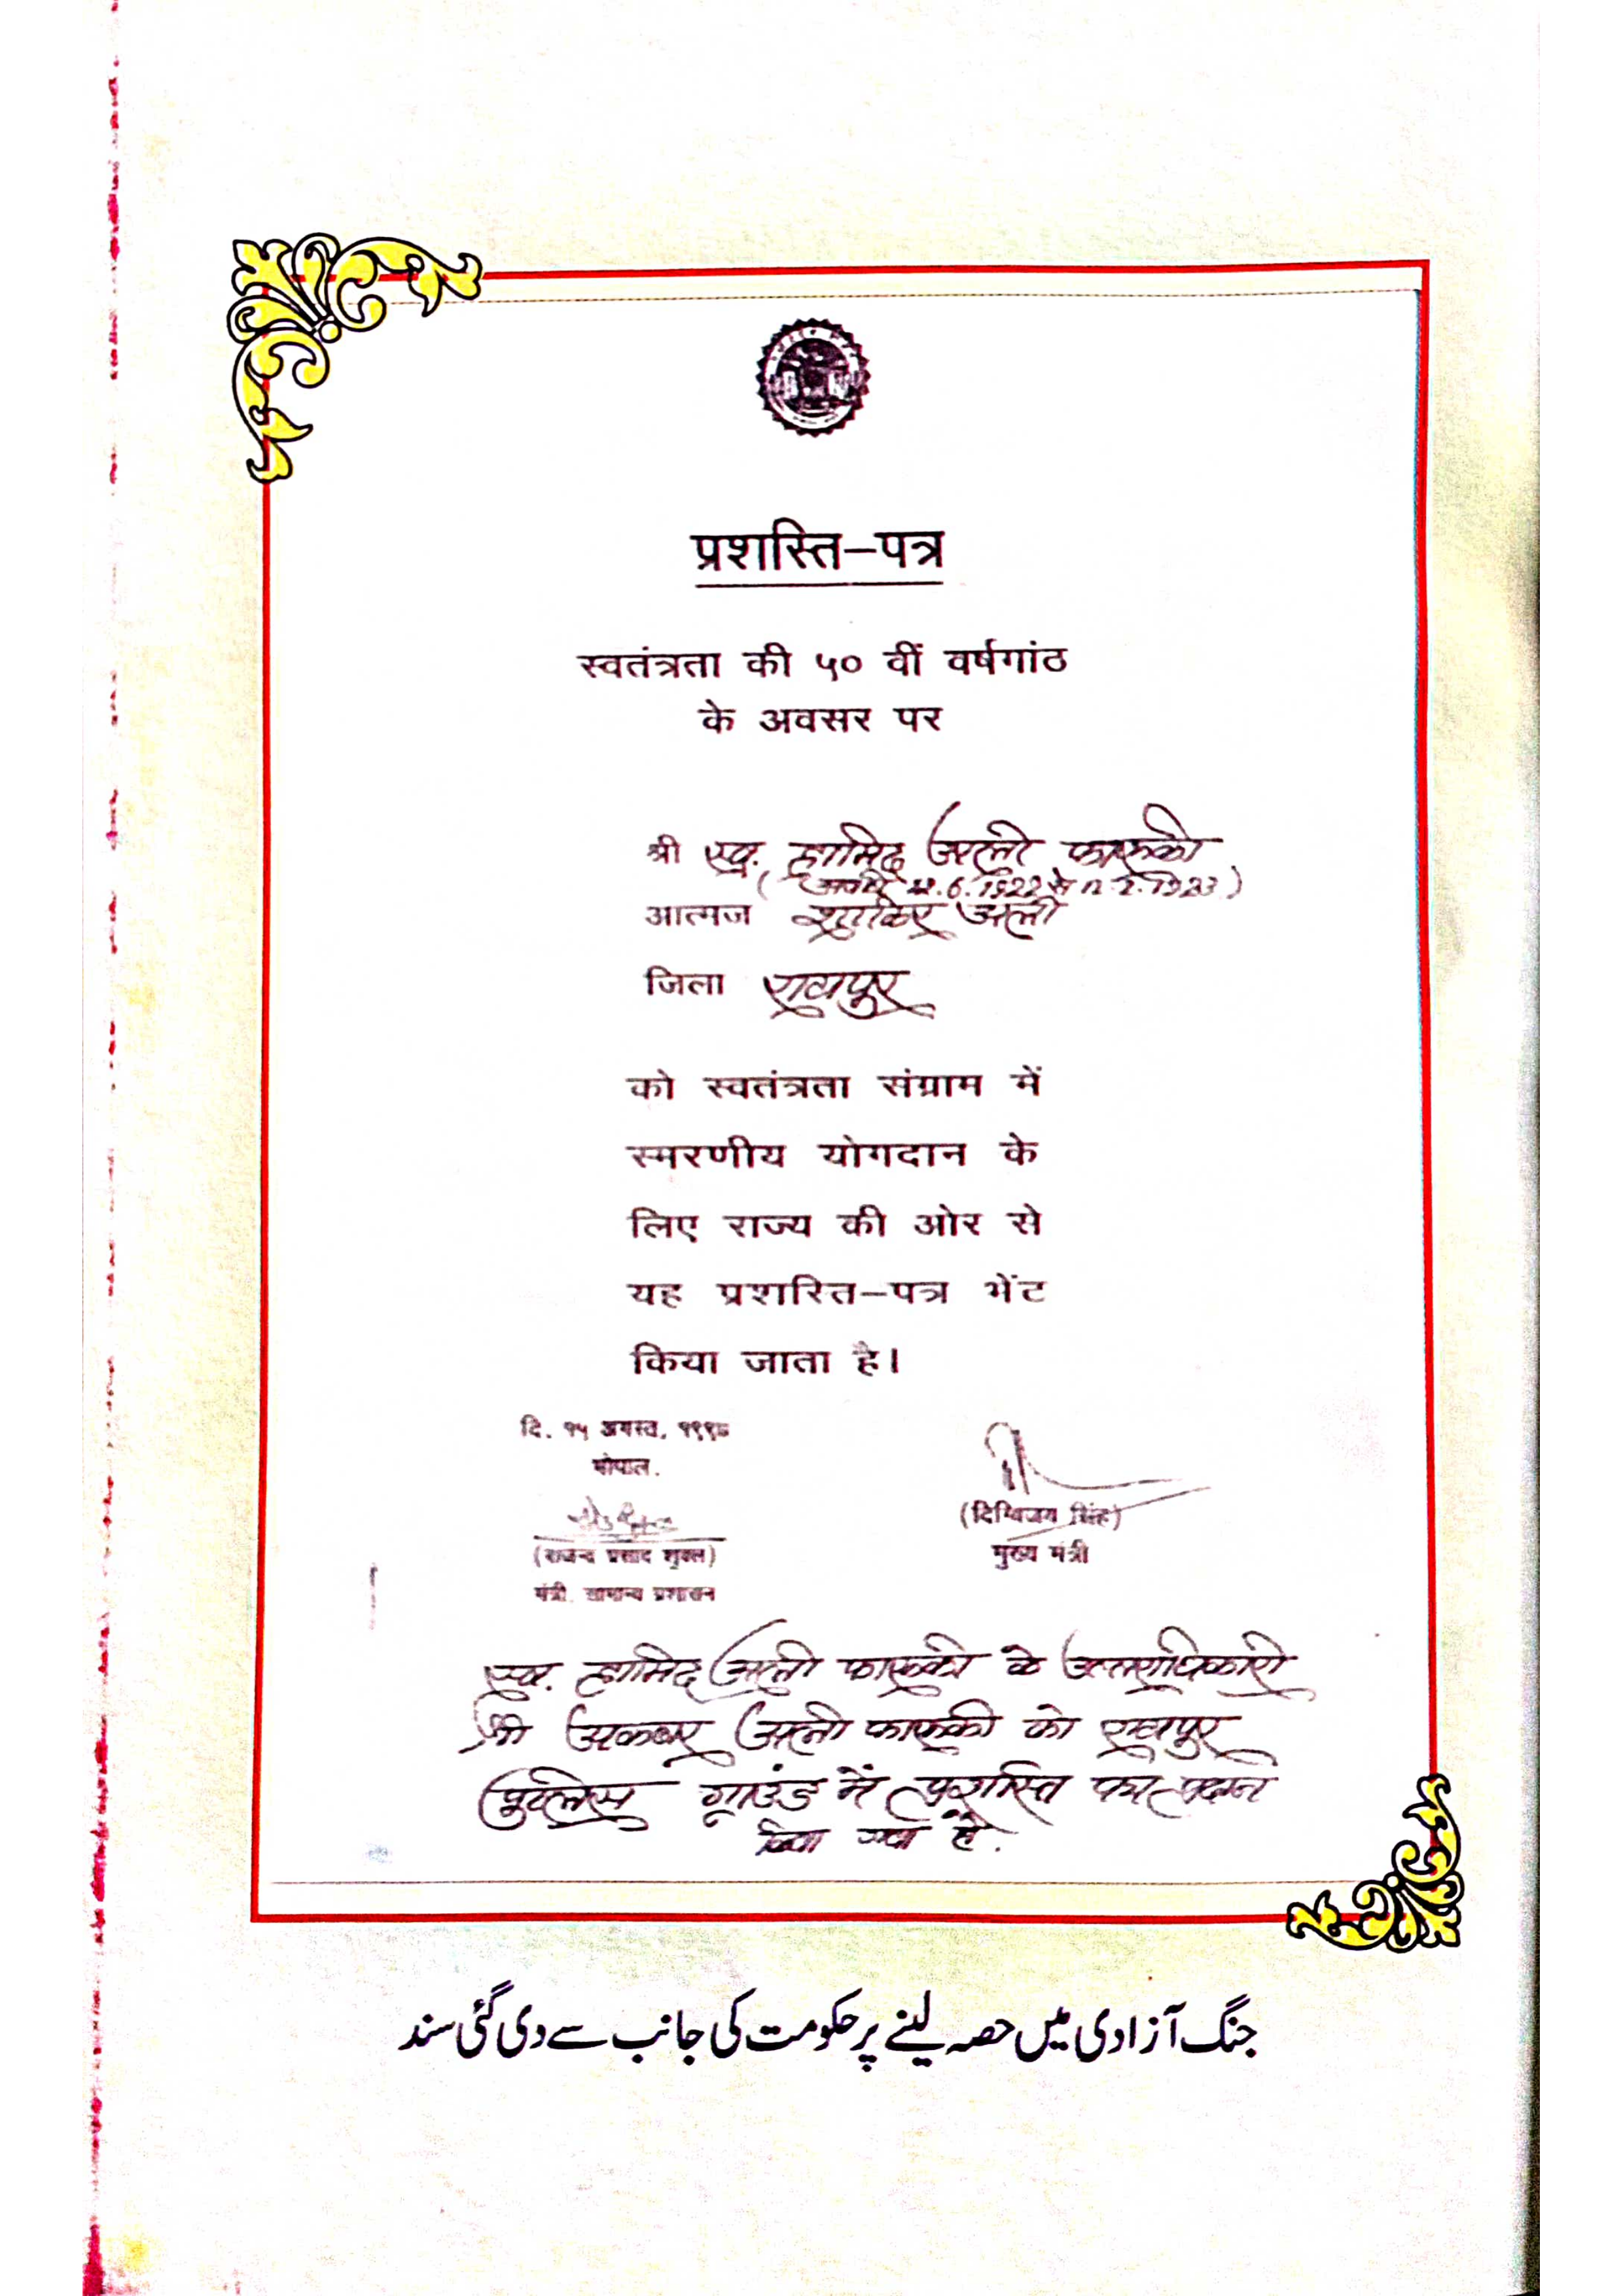 प्रशस्ति-पत्र
स्वतंत्रता की ५० वीं वर्षगांठ
के अवसर पर
श्री स्व. हामिद अली फारूकी
(अवधि .6.1922 से
आत्मज शाकिर अली
जिला रायपुर
को स्वतंत्रता संग्राम में
स्मरणीय योगदान के
लिए राज्य की ओर से
यह प्रशस्ति-पत्र भेंट
किया जाता है।
दि. १५ अगस्त,
भोपाल.
(दिग्विजय सिंह)
मुख्य मंत्री
(राजेन्द्र प्रसाद शुक्ल)
मंत्री. सामान्य प्रशासन
स्व. हामिद अली फारूकी के उत्तराधिकारी
श्री अकबर अली फारूकी को रायपुर
पुलिस ग्राउंड में प्रशस्ति पत्र प्रदान
किया गया है.
جنگ آزادی میں حصہ لینے پر حکومت کی جانب سے دی گئی سند